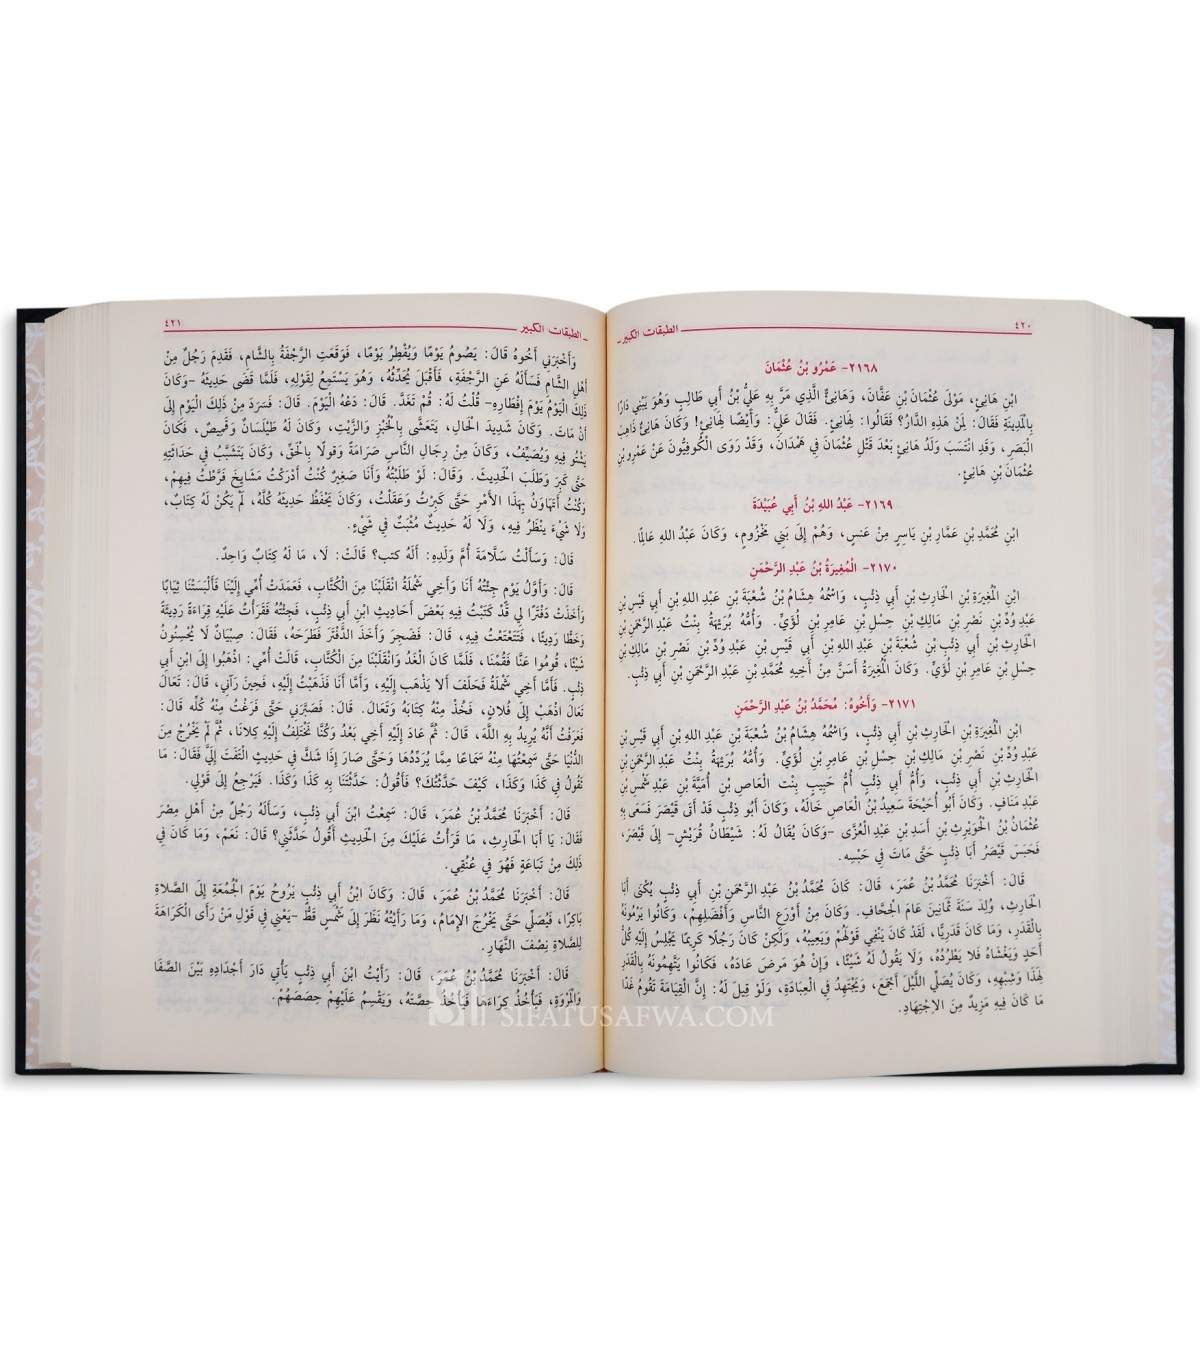 ٤٢٠ الطبقات الكبير
٢١٦٨- عَمْرُو بْنُ عُثْمَانَ
ابْنِ هَانِئٍ، مَوْلَى عُثْمَانَ بْنِ عَفَّانَ، وَهَانِئٌ الَّذِي مَرَّ بِهِ عَلِيُّ بْنُ أَبِي طَالِبٍ وَهُوَ يَبْنِي دَارًا
بِالْمَدِينَةِ فَقَالَ: لِمَنْ هَذِهِ الدَّارُ؟ فَقَالُوا: لِهَانِئٍ. فَقَالَ عَلِيٌّ: وَأَيْضًا لِهَانِئٍ! وَكَانَ هَانِئٌ ذَاهِبَ
الْبَصَرِ، وَقَدِ انْتَسَبَ وَلَدُ هَانِئٍ بَعْدَ قَتْلِ عُثْمَانَ فِي هَمْدَانَ، وَقَدْ رَوَى الْكُوفِيُّونَ عَنْ عَمْرِو بْنِ
عُثْمَانَ بْنِ هَانِئٍ.
٢١٦٩- عَبْدُ اللهِ بْنُ أَبِي عُبَيْدَةَ
ابْنِ مُحَمَّدِ بْنِ عَمَّارِ بْنِ يَاسِرٍ مِنْ عَنسٍ، وَهُمْ إِلَى بَنِي مَخْزُومٍ، وَكَانَ عَبْدُ اللهِ عَالِمًا.
٢١٧٠- الْمُغِيرَةُ بْنُ عَبْدِ الرَّحْمَنِ
ابْنِ الْمُغِيرَةِ بْنِ الْحَارِثِ بْنِ أَبِي ذِئْبٍ، وَاسْمُهُ هِشَامُ بْنُ شُعْبَةَ بْنِ عَبْدِ اللهِ بْنِ أَبِي قَيْسِ بْنِ
عَبْدِ وُدِّ بْنِ نَصْرِ بْنِ مَالِكِ بْنِ حِسْلِ بْنِ عَامِرِ بْنِ لُؤَيٍّ. وَأُمُّهُ بُرَيْهَةُ بِنْتُ عَبْدِ الرَّحْمَنِ بْنِ
الْحَارِثِ بْنِ أَبِي ذِئْبِ بْنِ شُعْبَةَ بْنِ عَبْدِ اللهِ بْنِ أَبِي قَيْسِ بْنِ عَبْدِ وُدِّ بْنِ نَصْرِ بْنِ مَالِكِ بْنِ
حِسْلِ بْنِ عَامِرِ بْنِ لُؤَيٍّ. وَكَانَ الْمُغِيرَةُ أَسَنَّ مِنْ أَخِيهِ مُحَمَّدِ بْنِ عَبْدِ الرَّحْمَنِ بْنِ أَبِي ذِئْبٍ.
٢١٧١- وَأَخُوهُ: مُحَمَّدُ بْنُ عَبْدِ الرَّحْمَنِ
ابْنِ الْمُغِيرَةِ بْنِ الْحَارِثِ بْنِ أَبِي ذِئْبٍ، وَاسْمُهُ هِشَامُ بْنُ شُعْبَةَ بْنِ عَبْدِ اللهِ بْنِ أَبِي قَيْسِ بْنِ
عَبْدِ وُدِّ بْنِ نَصْرِ بْنِ مَالِكِ بْنِ حِسْلِ بْنِ عَامِرِ بْنِ لُؤَيٍّ. وَأُمُّهُ بُرَيْهَةُ بِنْتُ عَبْدِ الرَّحْمَنِ بْنِ
الْحَارِثِ بْنِ أَبِي ذِئْبٍ، وَأُمُّ أَبِي ذِئْبٍ أُمُّ حَبِيبٍ بِنْت الْعَاصِ بْنِ أُمَيَّةَ بْنِ عَبْدِ شَمْسِ بْنِ
عَبْدِ مَنَافٍ. وَكَانَ أَبُو أُحَيْحَةَ سَعِيدُ بْنُ الْعَاصِ خَالَهُ، وَكَانَ أَبُو ذِئْبٍ قَدْ أَتَى قَيْصَرَ فَسَعَى بِهِ
عُثْمَانُ بْنُ الْحُوَيْرِثِ بْنِ أَسَدِ بْنِ عَبْدِ الْعُزَّى -وَكَانَ يُقَالُ لَهُ: شَيْطَانُ قُرَيْشٍ- إِلَى قَيْصَرَ،
فَحَبَسَ قَيْصَرُ أَبَا ذِئْبٍ حَتَّى مَاتَ فِي حَبْسِهِ.
قَالَ: أَخْبَرَنَا مُحَمَّدُ بْنُ عُمَرَ، قَالَ: كَانَ مُحَمَّدُ بْنُ عَبْدِ الرَّحْمَنِ بْنِ أَبِي ذِئْبٍ يُكْنَى أَبَا
الْحَارِثِ، وُلِدَ سَنَةَ ثَمَانِينَ عَامَ الْجُحَافِ. وَكَانَ مِنْ أَوْرَعِ النَّاسِ وَأَفْضَلِهِمْ، وَكَانُوا يَرْمُونَهُ
بِالْقَدَرِ، وَمَا كَانَ قَدَرِيًّا، لَقَدْ كَانَ يَنْفِي قَوْلَهُمْ وَيَعِيبُهُ، وَلَكِنْ كَانَ رَجُلًا كَرِيمًا يَجْلِسُ إِلَيْهِ كُلُّ
أَحَدٍ وَيَغْشَاهُ فَلَا يَطْرُدُهُ، وَلَا يَقُولُ لَهُ شَيْئًا، وَإِنْ هُوَ مَرَضَ عَادَهُ، فَكَانُوا يَتَّهِمُونَهُ بِالْقَدَرِ
لِهَذَا وَشِبْهِهِ، وَكَانَ يُصَلِّي اللَّيْلَ أَجْمَعَ، وَيَجْتَهِدُ فِي الْعِبَادَةِ، وَلَوْ قِيلَ لَهُ: إِنَّ الْقِيَامَةَ تَقُومُ غَدًا
مَا كَانَ فِيهِ مَزِيدٌ مِنَ الِاجْتِهَادِ.
الطبقات الكبير ٤٢١
وَأَخْبَرَنِي أَخُوهُ قَالَ: يَصُومُ يَوْمًا وَيُفْطِرُ يَوْمًا، فَوَقَعَتِ الرَّجْفَةُ بِالشَّامِ، فَقَدِمَ رَجُلٌ مِنْ
أَهْلِ الشَّامِ فَسَأَلَهُ عَنِ الرَّجْفَةِ، فَأَقْبَلَ يُحَدِّثُهُ، وَهُوَ يَسْتَمِعُ لِقَوْلِهِ، فَلَمَّا قَضَى حَدِيثَهُ -وَكَانَ
ذَلِكَ الْيَوْمُ يَوْمَ إِفْطَارِهِ- قُلْتُ لَهُ: قُمْ تَغَدَّ. قَالَ: دَعْهُ الْيَوْمَ. قَالَ: فَسَرَدَ مِنْ ذَلِكَ الْيَوْمِ إِلَى
أَنْ مَاتَ. وَكَانَ شَدِيدَ الْحَالِ، يَتَعَشَّى بِالْخُبْزِ وَالزَّيْتِ، وَكَانَ لَهُ طَيْلَسَانٌ وَقَمِيصٌ، فَكَانَ
يَشْتُو فِيهِ وَيُصَيِّفُ، وَكَانَ مِنْ رِجَالِ النَّاسِ صَرَامَةً وَقَولًا بِالْحَقِّ، وَكَانَ يَتَشَبَّبُ فِي حَدَاثَتِهِ
حَتَّى كَبِرَ وَطَلَبَ الْحَدِيثَ. وَقَالَ: لَوْ طَلَبْتُهُ وَأَنَا صَغِيرٌ كُنْتُ أَدْرَكْتُ مَشَايِخَ فَرَّطْتُ فِيهِمْ،
وَكُنْتُ أَتَهَاوَنُ بِهَذَا الْأَمْرِ حَتَّى كَبِرْتُ وَعَقَلْتُ، وَكَانَ يَحْفَظُ حَدِيثَهُ كُلَّهُ، لَمْ يَكُنْ لَهُ كِتَابٌ،
وَلَا شَيْءَ يَنْظُرُ فِيهِ، وَلَا لَهُ حَدِيثٌ مُثْبَتٌ فِي شَيْءٍ.
قَالَ: وَسَأَلْتُ سَلَّامَةَ أُمَّ وَلَدِهِ: أَلَهُ كتب؟ قَالَتْ: لَا، مَا لَهُ كِتَابٌ وَاحِدٌ.
قَالَ: وَأَوَّلُ يَوْمٍ جِئْتُهُ أَنَا وَأَخِي شَمْلَةُ انْقَلَبْنَا مِنَ الْكُتَّابِ، فَعَمَدَتْ أُمِّي إِلَيْنَا فَأَلْبَسَتْنَا ثِيَابًا
وَأَخَذْتُ دَفْتَرًا لِي قَدْ كَتَبْتُ فِيهِ بَعْضَ أَحَادِيثِ ابْنِ أَبِي ذِئْبٍ، فَجِئْتُهُ فَقَرَأْتُ عَلَيْهِ قِرَاءَةً رَدِيئَةً
وَخَطًّا رَدِيئًا، فَتَتَعْتَعْتُ فِيهِ، قَالَ: فَضَجِرَ وَأَخَذَ الدَّفْتَرَ فَطَرَحَهُ، فَقَالَ: صِبْيَانٌ لَا يُحْسِنُونَ
شَيْئًا، قُومُوا عَنَّا فَقُمْنَا، فَلَمَّا كَانَ الْغَدُ وَانْقَلَبْنَا مِنَ الْكُتَّابِ، قَالَتْ أُمِّي: اذْهَبُوا إِلَى ابْنِ أَبِي
ذِئْبٍ. فَأَمَّا أَخِي شَمْلَةُ فَحَلَفَ أَلا يَذْهَبَ إِلَيْهِ، وَأَمَّا أَنَا فَذَهَبْتُ إِلَيْهِ، فَحِينَ رَآنِي، قَالَ: تَعَالَ
تَعَالَ اذْهَبْ إِلَى فُلَانٍ، فَخُذْ مِنْهُ كِتَابَهُ وَتَعَالَ. قَالَ: فَصَبَّرَنِي حَتَّى فَرَغْتُ مِنْهُ كُلِّهِ قَالَ:
فَعَرَفْتُ أَنَّهُ يُرِيدُ بِهِ اللهَ، قَالَ: ثُمَّ عَادَ إِلَيْهِ أَخِي بَعْدُ وَكُنَّا نَخْتَلِفُ إِلَيْهِ كِلَانَا، ثُمَّ لَمْ يَخْرُجْ مِنَ
الدُّنْيَا حَتَّى سَمِعْتُهَا مِنْهُ سَمَاعًا مِمَّا يُرَدِّدُهَا وَحَتَّى صَارَ إِذَا شَكَّ فِي حَدِيثٍ الْتَفَتَ إِلَيَّ فَقَالَ: مَا
تَقُولُ فِي كَذَا وَكَذَا، كَيْفَ حَدَّثْتُكَ؟ فَأَقُولُ: حَدَّثْتَنَا بِهِ كَذَا وَكَذَا. فَيَرْجِعُ إِلَى قَوْلِي.
قَالَ: أَخْبَرَنَا مُحَمَّدُ بْنُ عُمَرَ، قَالَ: سَمِعْتُ ابْنَ أَبِي ذِئْبٍ، وَسَأَلَهُ رَجُلٌ مِنْ أَهْلِ مِصْرَ
فَقَالَ: يَا أَبَا الْحَارِثِ، مَا قَرَأْتُ عَلَيْكَ مِنَ الْحَدِيثِ أَقُولُ حَدَّثَنِي؟ قَالَ: نَعَمْ، وَمَا كَانَ فِي
ذَلِكَ مِنْ تِبَاعَةٍ فَهُوَ فِي عُنُقِي.
قَالَ: أَخْبَرَنَا مُحَمَّدُ بْنُ عُمَرَ، قَالَ: وَكَانَ ابْنُ أَبِي ذِئْبٍ يَرُوحُ يَوْمَ الْجُمُعَةِ إِلَى الصَّلَاةِ
بَاكِرًا، فَيُصَلِّي حَتَّى يَخْرُجَ الْإِمَامُ، وَمَا رَأَيْتُهُ نَظَرَ إِلَى شَمْسٍ قَطُّ -يَعْنِي فِي قَوْلِ مَنْ رَأَى الْكَرَاهَةَ
لِلصَّلَاةِ نِصْفَ النَّهَارِ.
قَالَ: أَخْبَرَنَا مُحَمَّدُ بْنُ عُمَرَ، قَالَ: رَأَيْتُ ابْنَ أَبِي ذِئْبٍ يَأْتِي دَارَ أَجْدَادِهِ بَيْنَ الصَّفَا
وَالْمَرْوَةِ، فَيَأْخُذُ كِرَاءَهَا فَيَأْخُذُ حِصَّتَهُ، وَيَقْسِمُ عَلَيْهِمْ حِصَصَهُمْ.
SIFATUSAFWA.COM